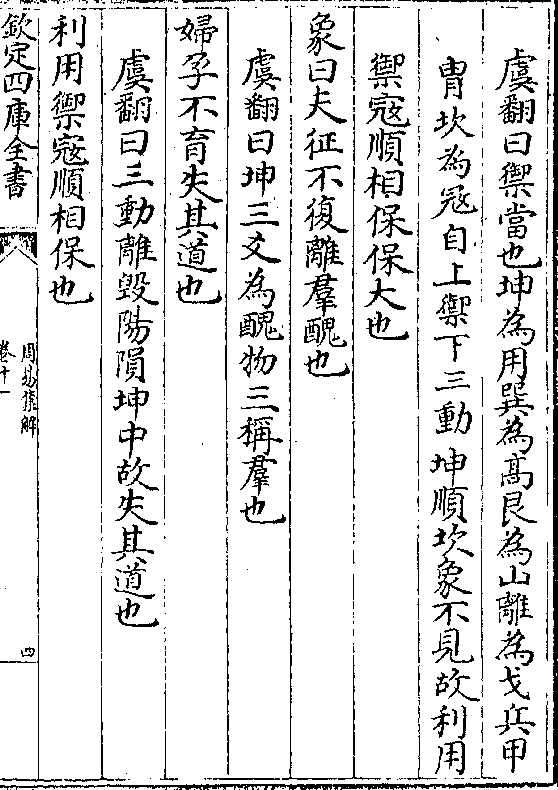 虞翻曰禦當也坤為用巽為髙艮為山離為戈兵甲
胄坎為宼自上禦下三動坤順坎象不見故利用
禦宼順相保保大也
象曰夫征不復離羣醜也
虞翻曰坤三爻為醜物三稱羣也
婦孕不育失其道也
虞翻曰三動離毀陽隕坤中故失其道也
利用禦宼順相保也
欽定四庫全書
周易集解
卷十一
四